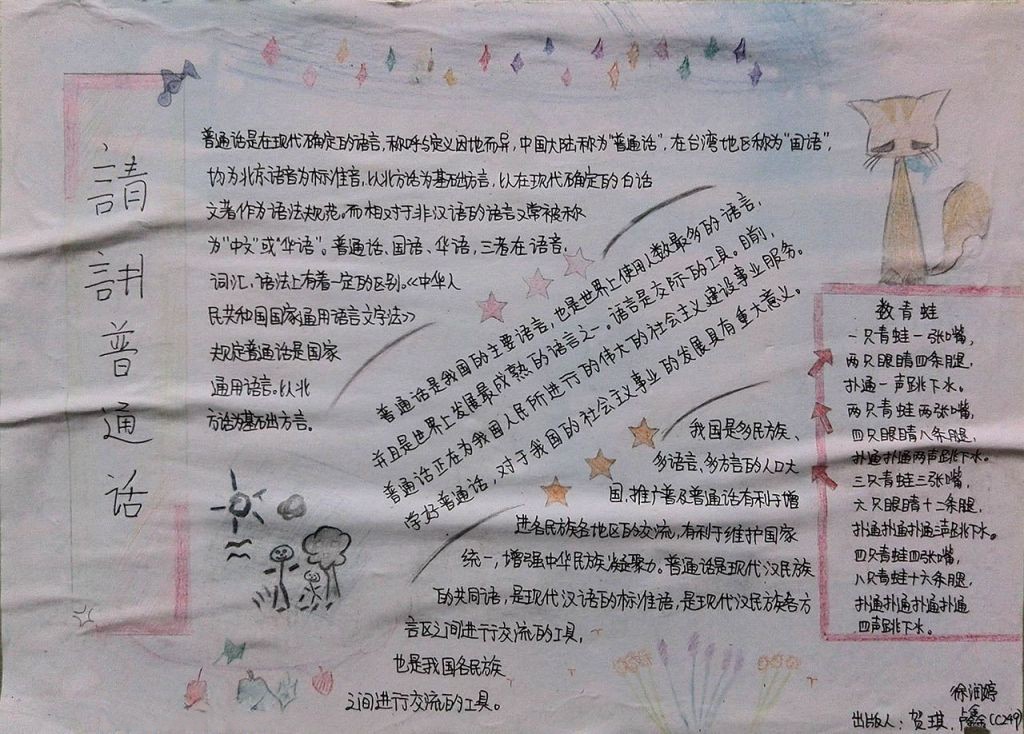 請講普通话
普通话是在现代确定的语言,称呼与定义因地而异,中国大陆称为“普通话”,在台湾地区称为“国语”,
均为北京语音为标准音,以北方话为基础方言,以在现代确定的白话
文著作为语法规范。而相对于非汉语的语言又常被称
为“中文”或“华语”。普通话、国语、华语,三者在语音、
词汇、语法上有着一定的区别。《中华人
民共和国国家通用语言文字法》
规定普通话是国家
通用语言。以北
方话为基础方言。
普通话是我国的主要语言,也是世界上使用人数最多的语言,
并且是世界上发展最成熟的语言之一。语言是交际的工具。目前,
普通话正在为我国人民所进行的伟大的社会主义建设事业服务。
学好普通话,对于我国的社会主义事业的发展具有重大意义。
我国是多民族、
多语言,多方言的人口大
国,推广普及普通话有利于增
进各民族各地区的交流,有利于维护国家
统一,增强中华民族凝聚力。普通话是现代汉民族
的共同语,是现代汉语的标准语,是现代汉民族各方
言区之间进行交流的工具,
也是我国各民族
之间进行交流的工具。
数青蛙
一只青蛙一张嘴,
两只眼睛四条腿,
扑通一声跳下水。
两只青蛙两张嘴,
四只眼睛八条腿,
扑通扑通两声跳下水。
三只青蛙三张嘴,
六只眼睛十二条腿,
扑通扑通扑通三声跳下水。
四只青蛙四张嘴,
八只青蛙十六条腿,
扑通扑通扑通扑通
四声跳下水。
徐润婷
出版人:贺琪,卢鑫(C249)